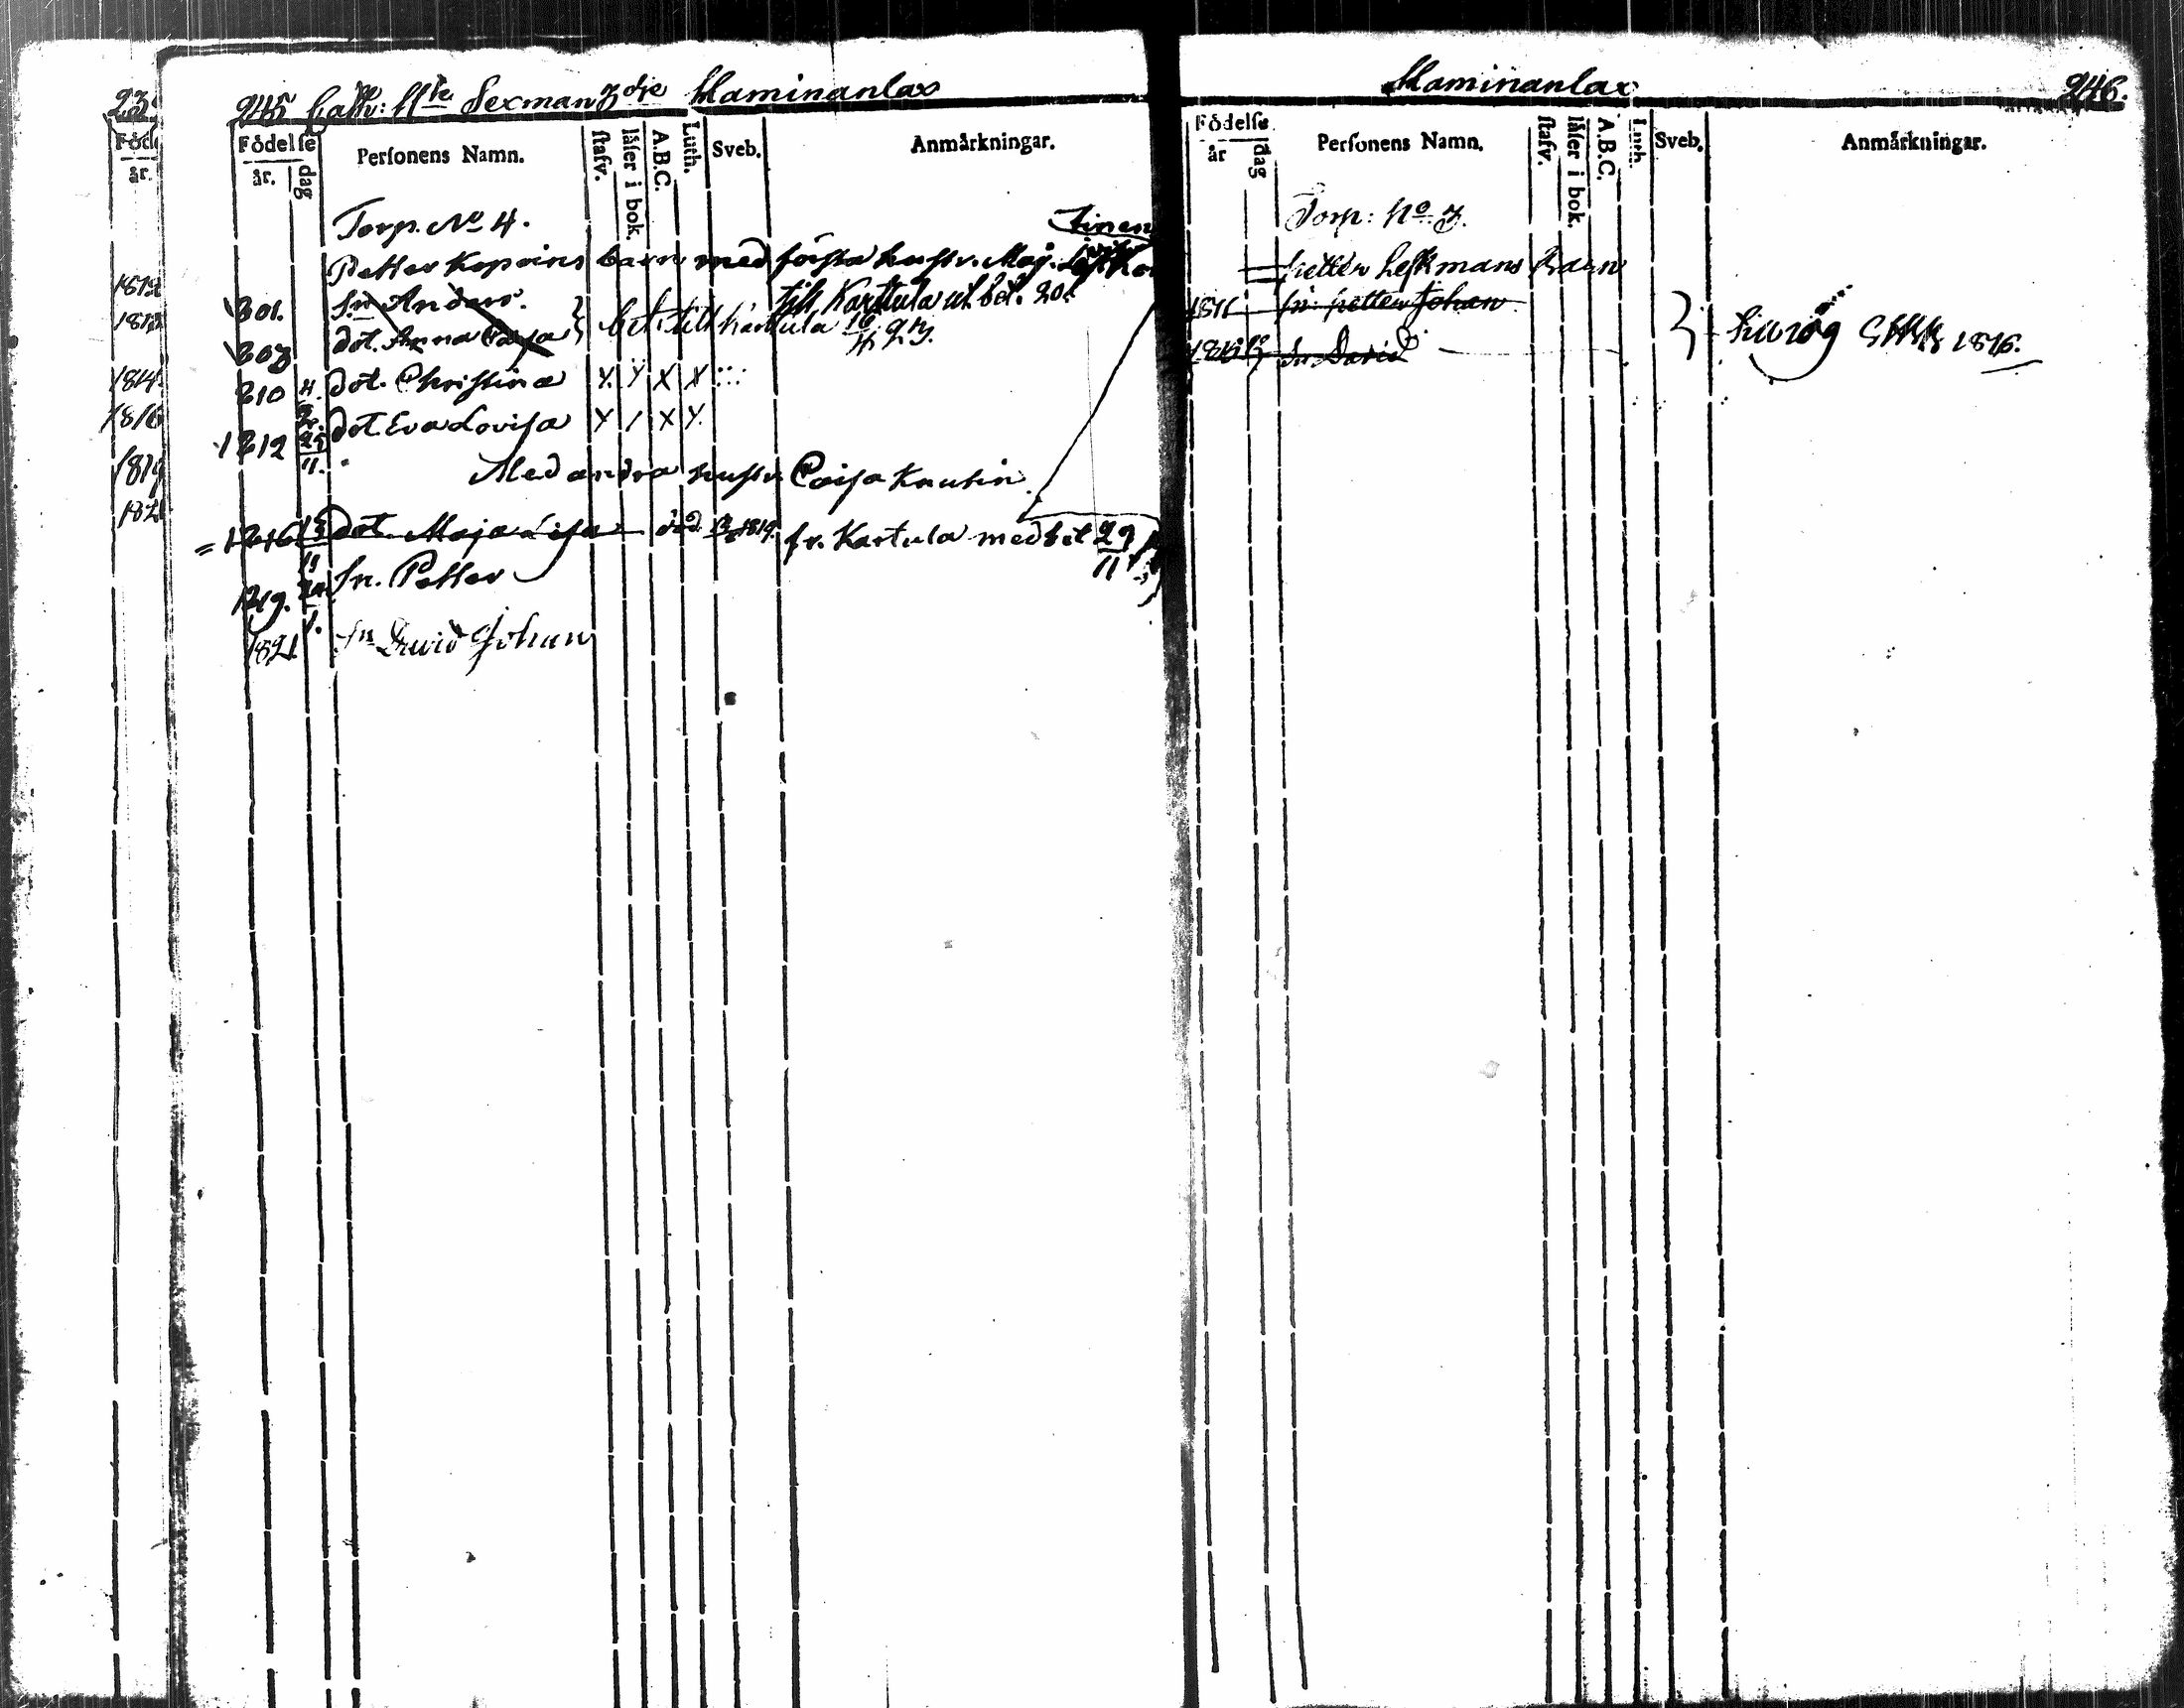 23
Föd
år.
1812
1813
1814
1816
1819
182
245 Cath: 11te Sexman 3dje Haminanlax
Födelse
år. dag
Personens Namn.
stafv.
läser i bok.
A.B.C.
Luth.
Sveb.
Anmärkningar.
Torp. No 4.
Petter Kopoins barn med första hustr. Maj.
801. Sn Anders. till Karttula ut. bet. 20.
803 dot. Anna Caisa } bet. till Karttula 16/4 23.
810 4. dot. Christina Y. Y X X :::
1812 25/11. dot. Eva Lovisa Y / X Y.
Med andra hustr. Caisa Knutin
= 1816 13/11 dot. Maja Lisa död 1819. fr. Kartula med bet 29/11
1819. 20/1. Sn. Petter
1821 Sn David Johan
Haminanlax 246.
Födelse
år dag
Personens Namn.
stafv.
läser i bok.
A.B.C.
Luth.
Sveb.
Anmärkningar.
Torp: No 7.
Petter Leskmans Barn
Sn Petter Johan
Sn David
1816.